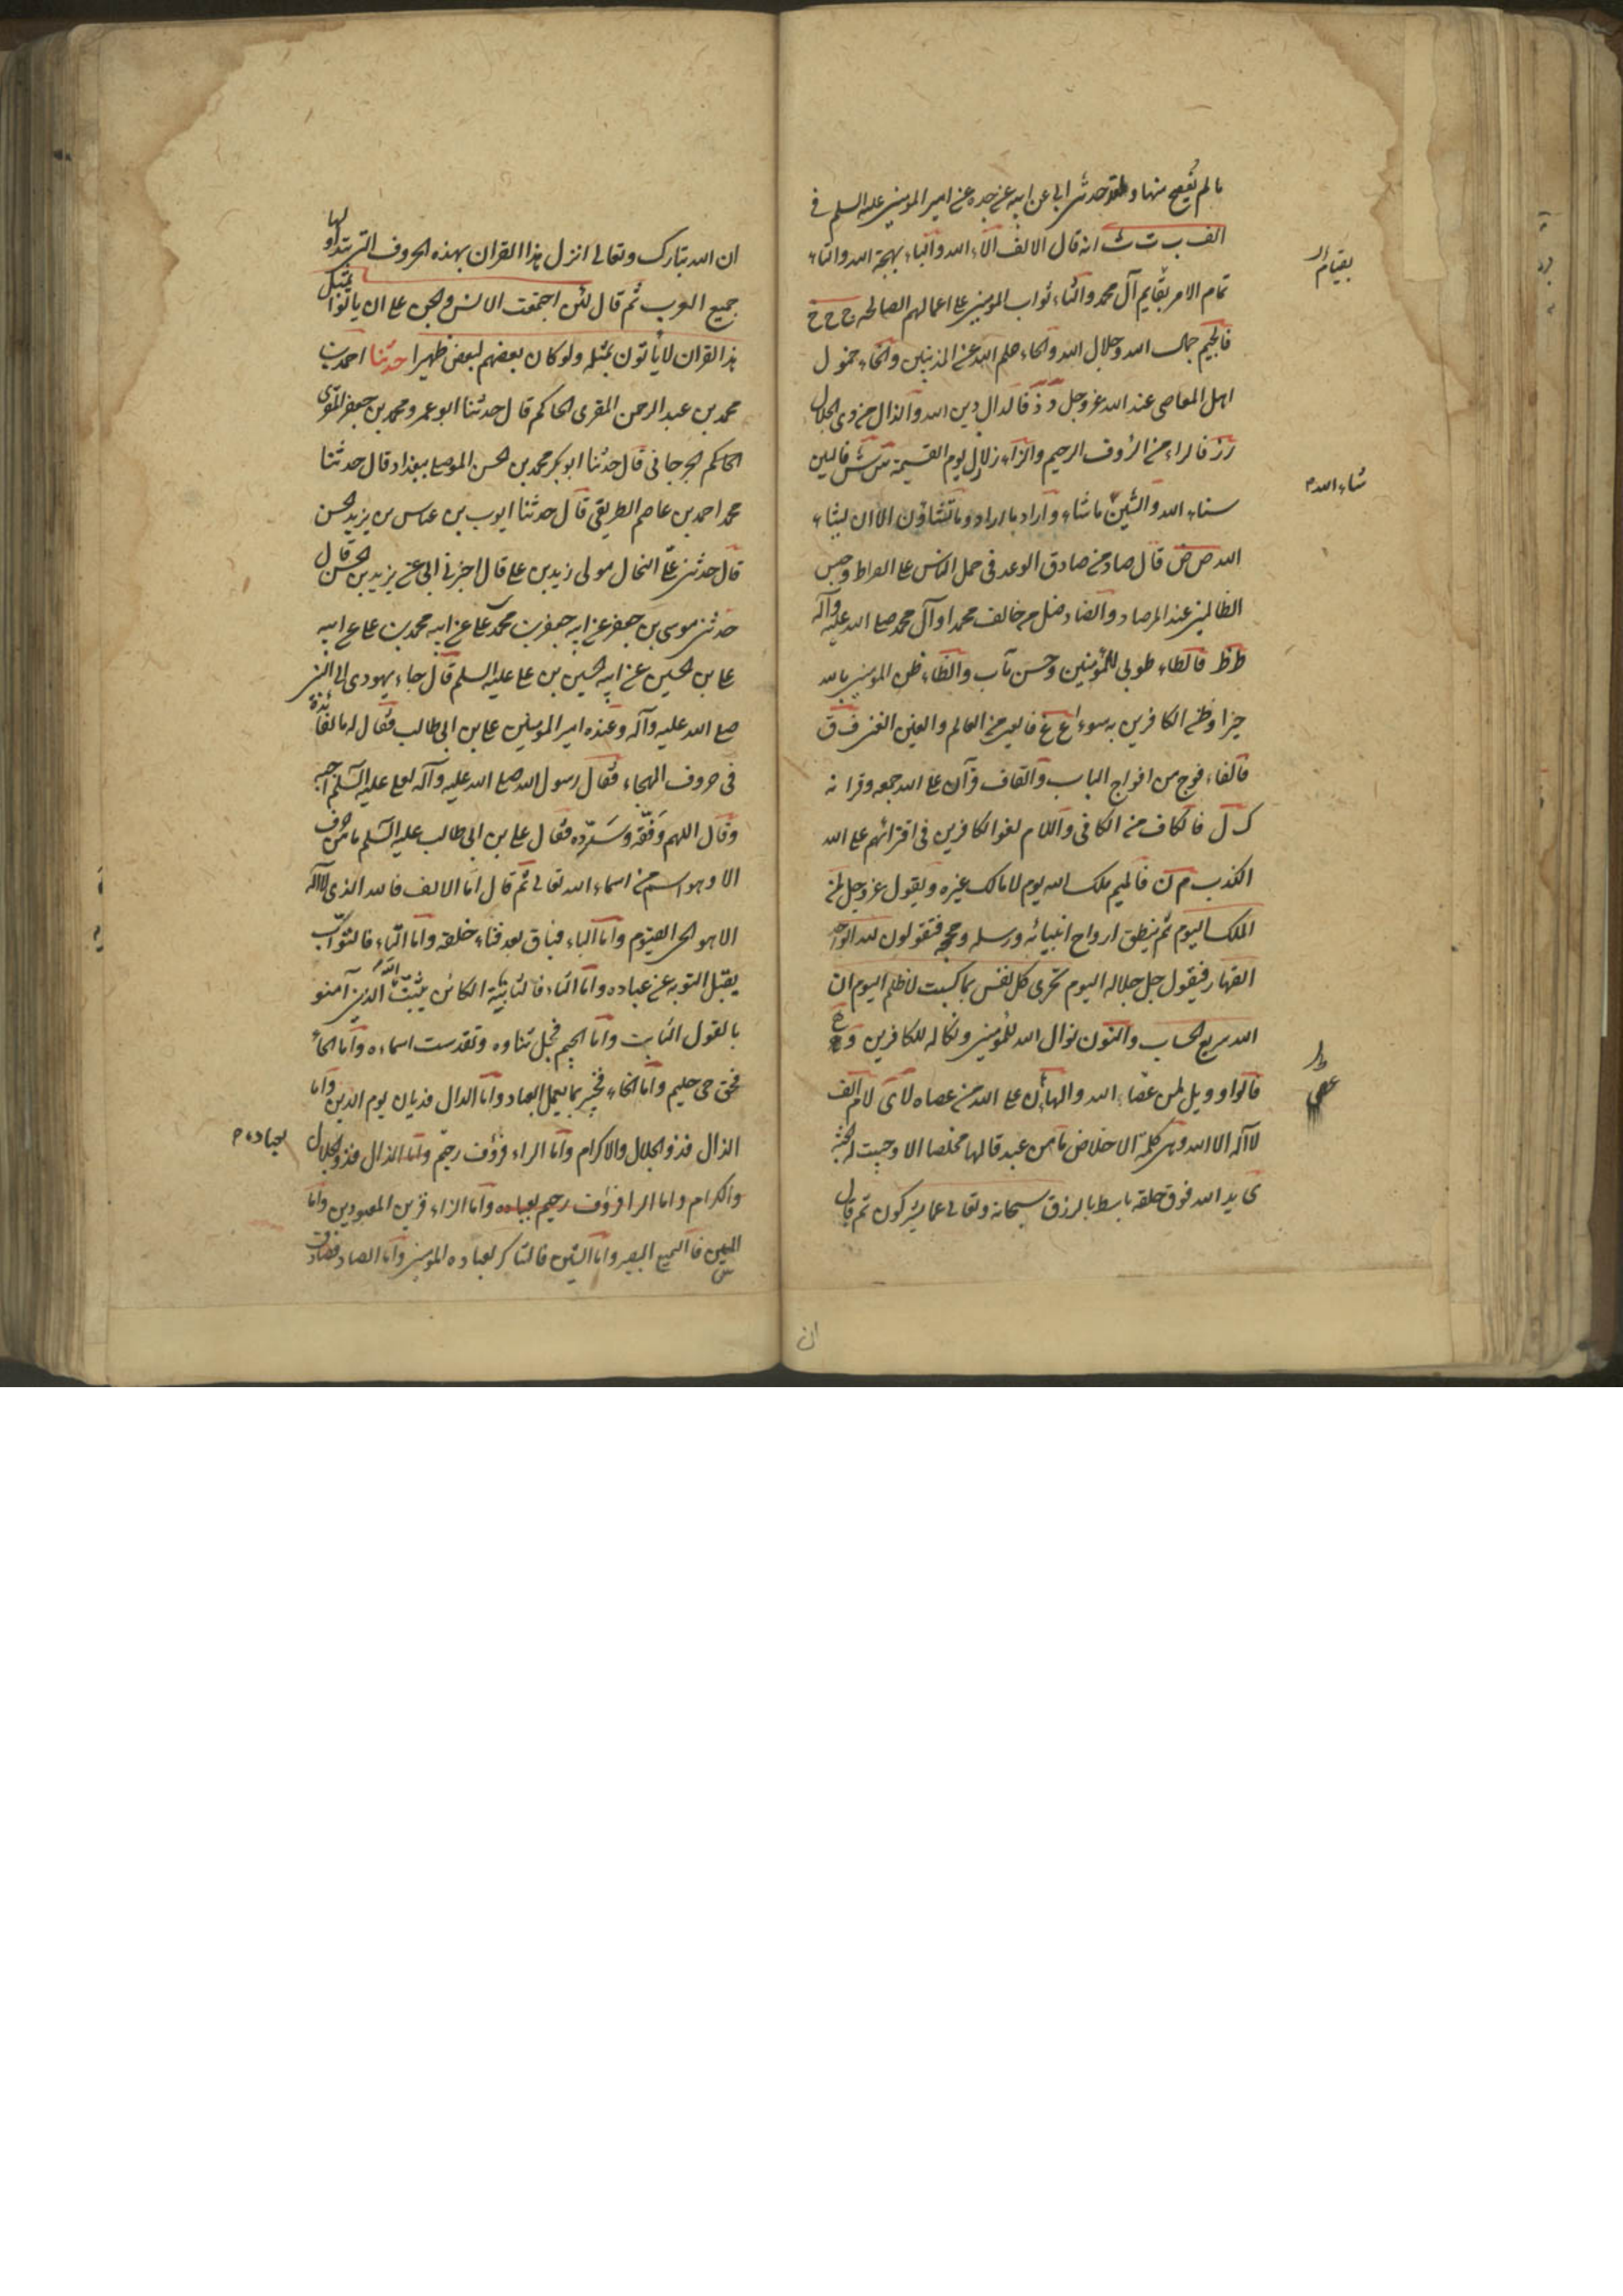 ما لم يفصح منها و لقد حدثنى ابى عن ابيه عن جده عن امير المؤمنين عليه السلم فى
الف ب ت ث انه قال الالف الآء الله والباء بهجة الله والتاء
تمام الامر بقايم آل محمد والثاء ثواب المؤمنين على اعمالهم الصالحه ج ح خ
بقيام ال
فالجيم جمال الله وجلال الله والحاء حلم الله عن المذنبين والخاء خمول
اهل المعاصى عند الله عز وجل د ذ فالدال دين الله والذال من ذى الجلال
ر ز فالراء من الرؤف الرحيم والزاء زلازل يوم القيمة س ش فالسين
سناء الله والشين ما شاء واراد ما اراد وما تشاؤن الا ان يشاء
شاء الله
الله ص ض قال صاد من صادق الوعد فى حمل الناس على الصراط وحبس
الظالمين عند المرصاد والضاد ضل من خالف محمدا وآل محمد صلى الله عليه وآله
ط ظ فالطاء طوبى للمؤمنين وحسن مآب والظاء ظن المؤمنين بالله
خيرا وظن الكافرين به سوءا ع غ فالعين من العالم والغين الغنى ف ق
فالفاء فوج من افواج الباب والقاف قرآن على الله جمعه وقرانه
ك ل فالكاف من الكافى واللام لغو الكافرين فى افترائهم على الله
الكذب م ن فالميم ملك الله يوم لا مالك غيره ويقول عز وجل لمن
الملك اليوم ثم ينطق ارواح انبيائه ورسله وحججه فتقولون لله الواحد
القهار فيقول جل جلاله اليوم تجزى كل نفس بما كسبت لا ظلم اليوم ان
الله سريع الحساب والنون نوال الله للمؤمنين ونكاله للكافرين و ه
فالواو ويل لمن عصا الله والهاء هان على الله من عصاه لا ى لام الف
عصى
لا آله الا الله وهى كلمة الاخلاص ما من عبد قالها مخلصا الا وجبت له الجنة
ى يد الله فوق خلقه باسط بالرزق سبحانه وتعالى عما يشركون ثم قال
ان
ان الله تبارك وتعالى انزل هذا القران بهذه الحروف التى يتداولها
جميع العرب ثم قال لئن اجتمعت الانس والجن على ان ياتوا بمثل
هذا القران لا يأتون بمثله ولو كان بعضهم لبعض ظهيرا حدثنا احمد بن
محمد بن عبد الرحمن المقرى الحاكم قال حدثنا ابو عمرو محمد بن جعفر المقرى
الحاكم الجرجانى قال حدثنا ابو بكر محمد بن الحسن الموصلى ببغداد قال حدثنا
محمد احمد بن عاصم الطريقى قال حدثنا ايوب بن عباس بن يزيد الحسن
قال حدثنى على النحال مولى زيد بن على قال اخبرنى ابى عن يزيد بن الحسن قال
حدثنى موسى بن جعفر عن ابيه جعفر بن محمد على عن ابيه محمد بن على عن ابيه
على بن الحسين عن ابيه الحسين بن على عليه السلم قال جاء يهودى الى النبى
صلى الله عليه وآله وعنده امير المؤمنين على بن ابى طالب فقال له ما الفائده
فى حروف الهجاء فقال رسول الله صلى الله عليه وآله لعلى عليه السلم اجبه
وقال اللهم وفقه وسدده فقال على بن ابى طالب عليه السلم ما من حرف
الا وهو اسم من اسماء الله تعالى ثم قال اما الالف فالله الذى لا اله
الا هو الحى القيوم واما الباء فباق بعد فناء خلقه واما التاء فالتواب
يقبل التوبه عن عباده واما الثاء فالثابت الكائن يثبت الله الذين آمنو
بالقول الثابت واما الجيم فجل ثناوه وتقدست اسماءه واما الحاء
فحق حى حليم واما الخاء فخبير بما يعمل العباد واما الدال فديان يوم الدين واما
الذال فذو الجلال والاكرام واما الراء فرؤف رحيم واما الذال فذو الجلال
بعباده
والكرام واما الرا فرؤف رحيم بعباده واما الزاء فزين المعبودين واما
السين فالسميع البصير واما الشين فالشاكر لعباده المؤمنين واما الصاد فصادق